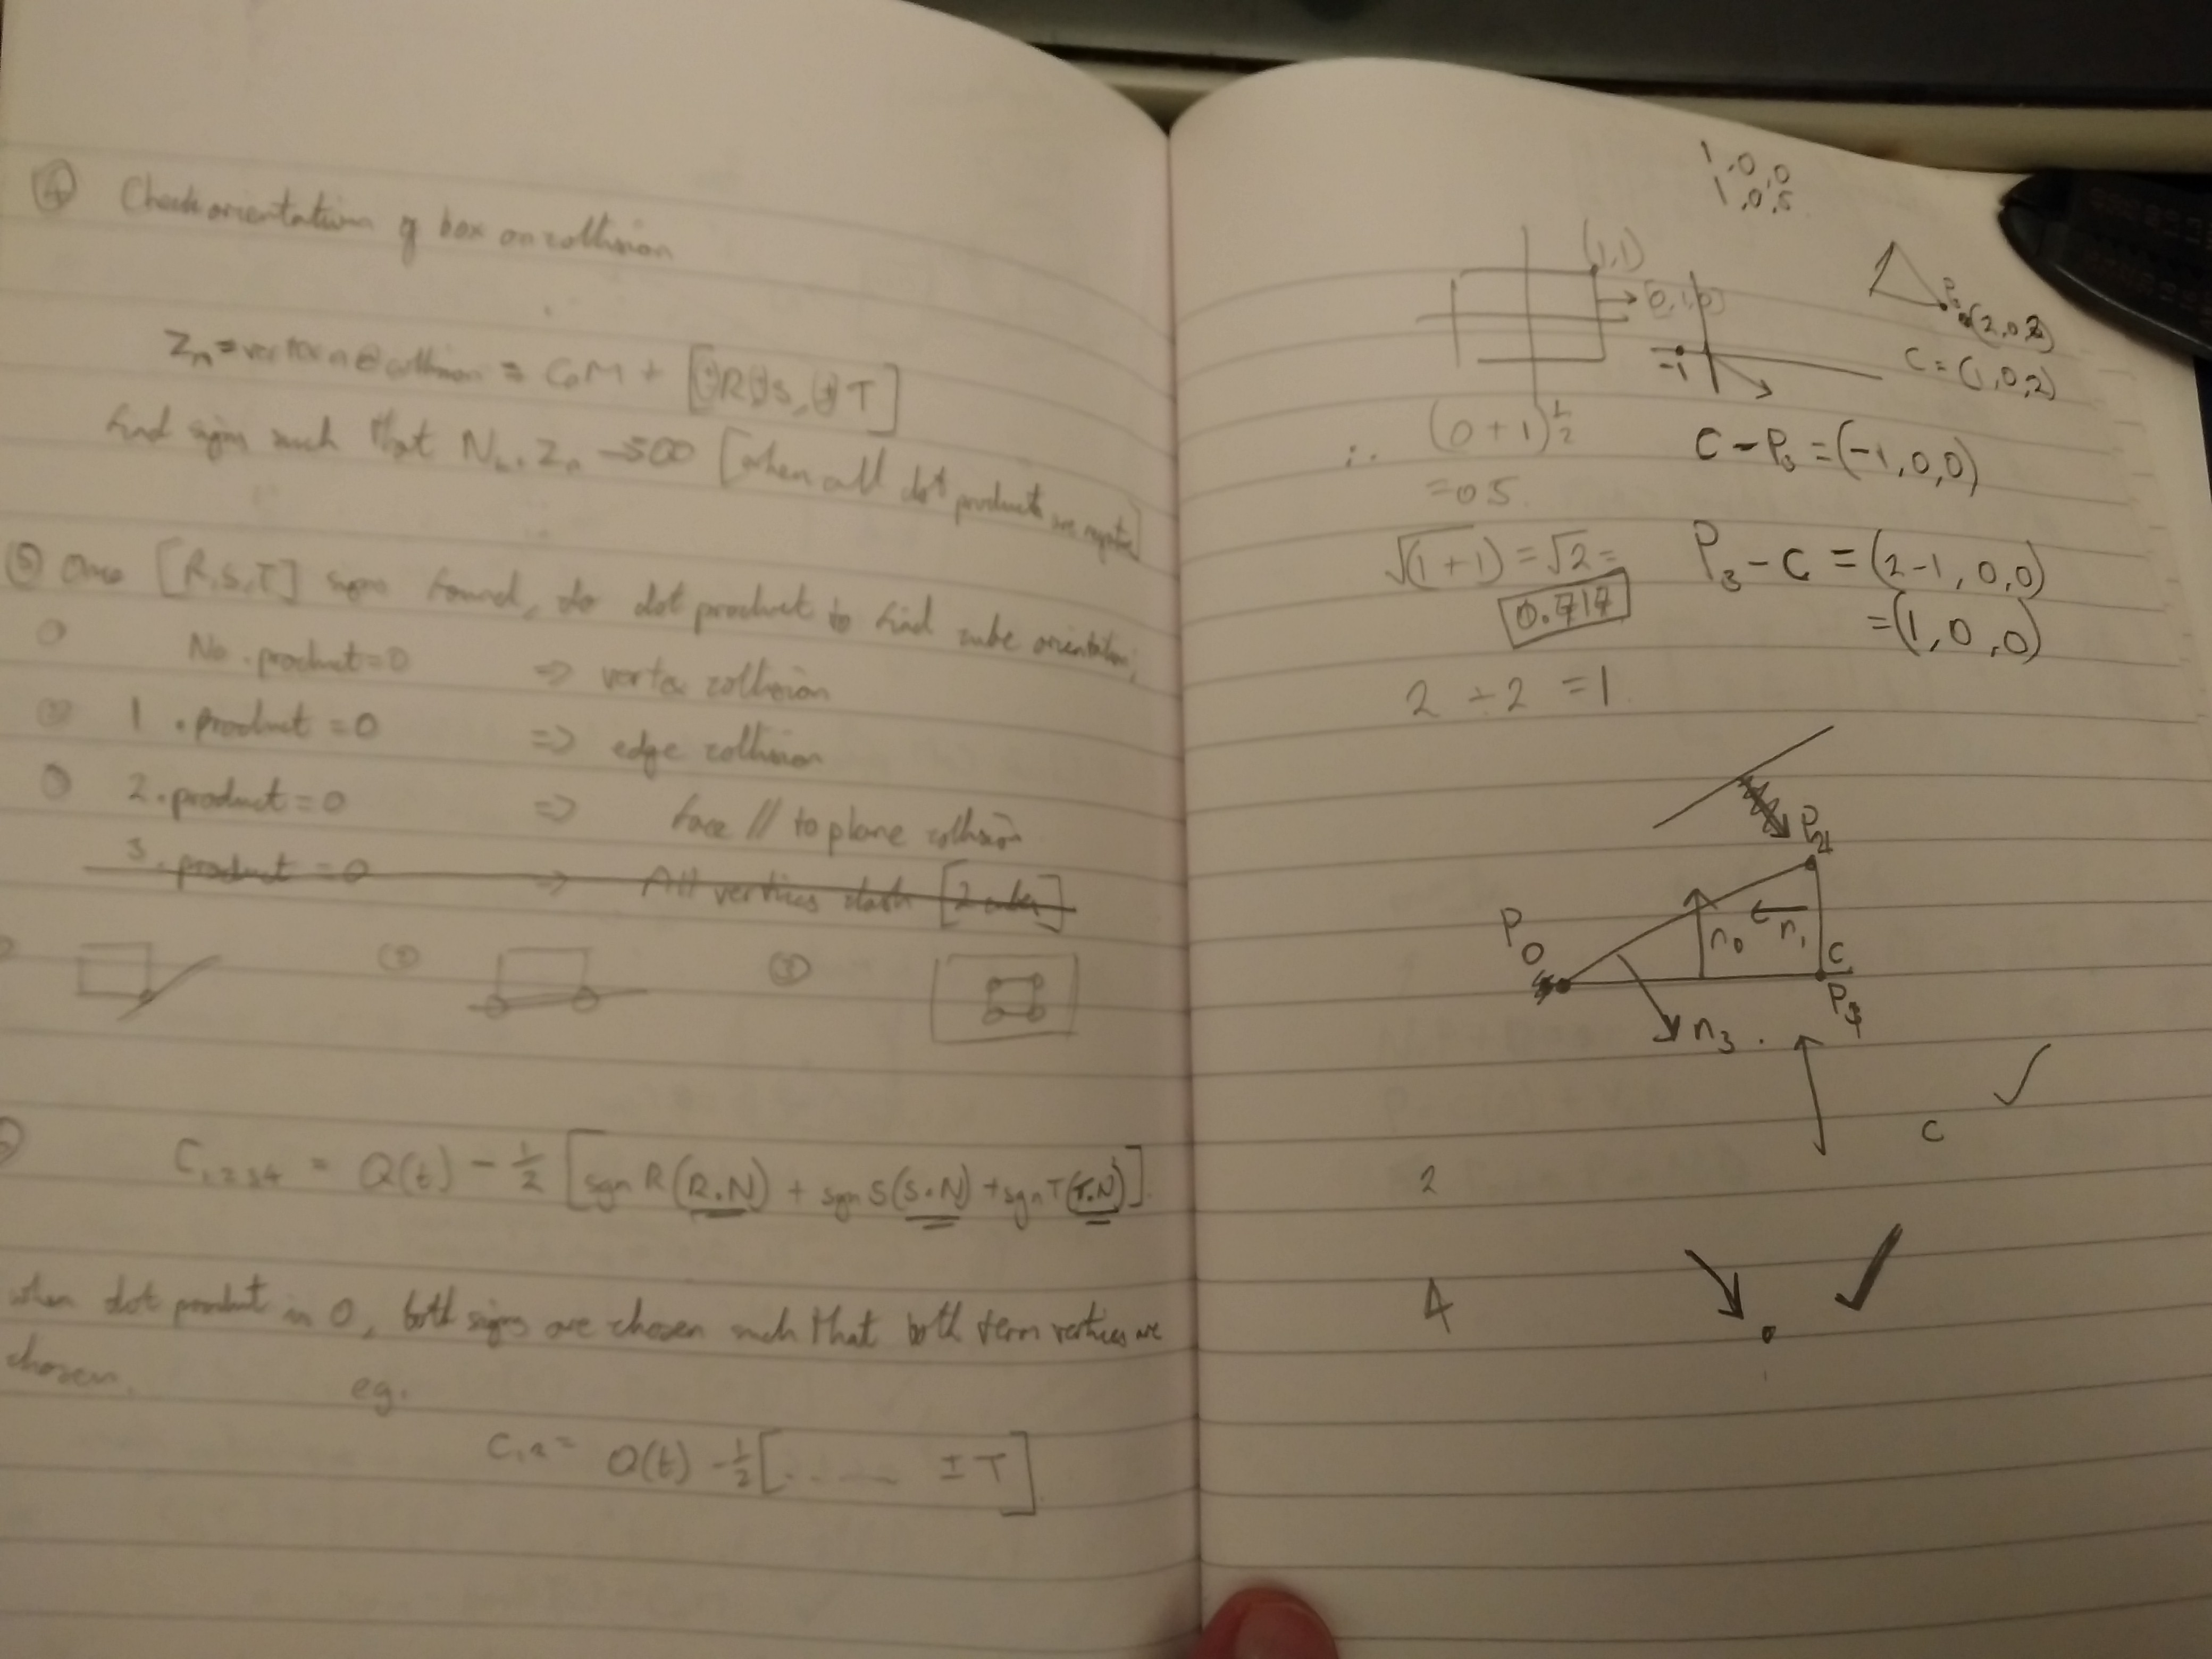 ④ Check orientation of box on collision
Zn = vertex n @ collision = CoM + [(±)R(±)S,(±)T]
find signs such that NL.Zn → [when all dot products are negative]
⑤ Once [R,S,T] signs found, do dot product to find cube orientation;
No .product=0 ⇒ vertex collision
1 .product=0 ⇒ edge collision
2.product=0 ⇒ face // to plane collision
3.product=0 ⇒ All vertices clash [2 cubes]
② ③
C1234 = Q(t) - 1/2 [sgn R(R.N) + sgn S(S.N) + sgn T(T.N)]
when dot product is 0, both signs are chosen such that both term vertices are
chosen.
eg.
C1,2 = Q(t) - 1/2 [..... ± T]
1,0,0
1,0,5
(1,1)
[0,1,0]
-1
P3 (2,0,2)
C=(1,0,2)
∴ (0+1)1/2
=0.5
√(1+1) = √2 =
0.717
2 ÷ 2 = 1
C-P3=(-1,0,0)
P3-C=(2-1,0,0)
=(1,0,0)
P0
n0
n1
C
P3
n3
C
2
4